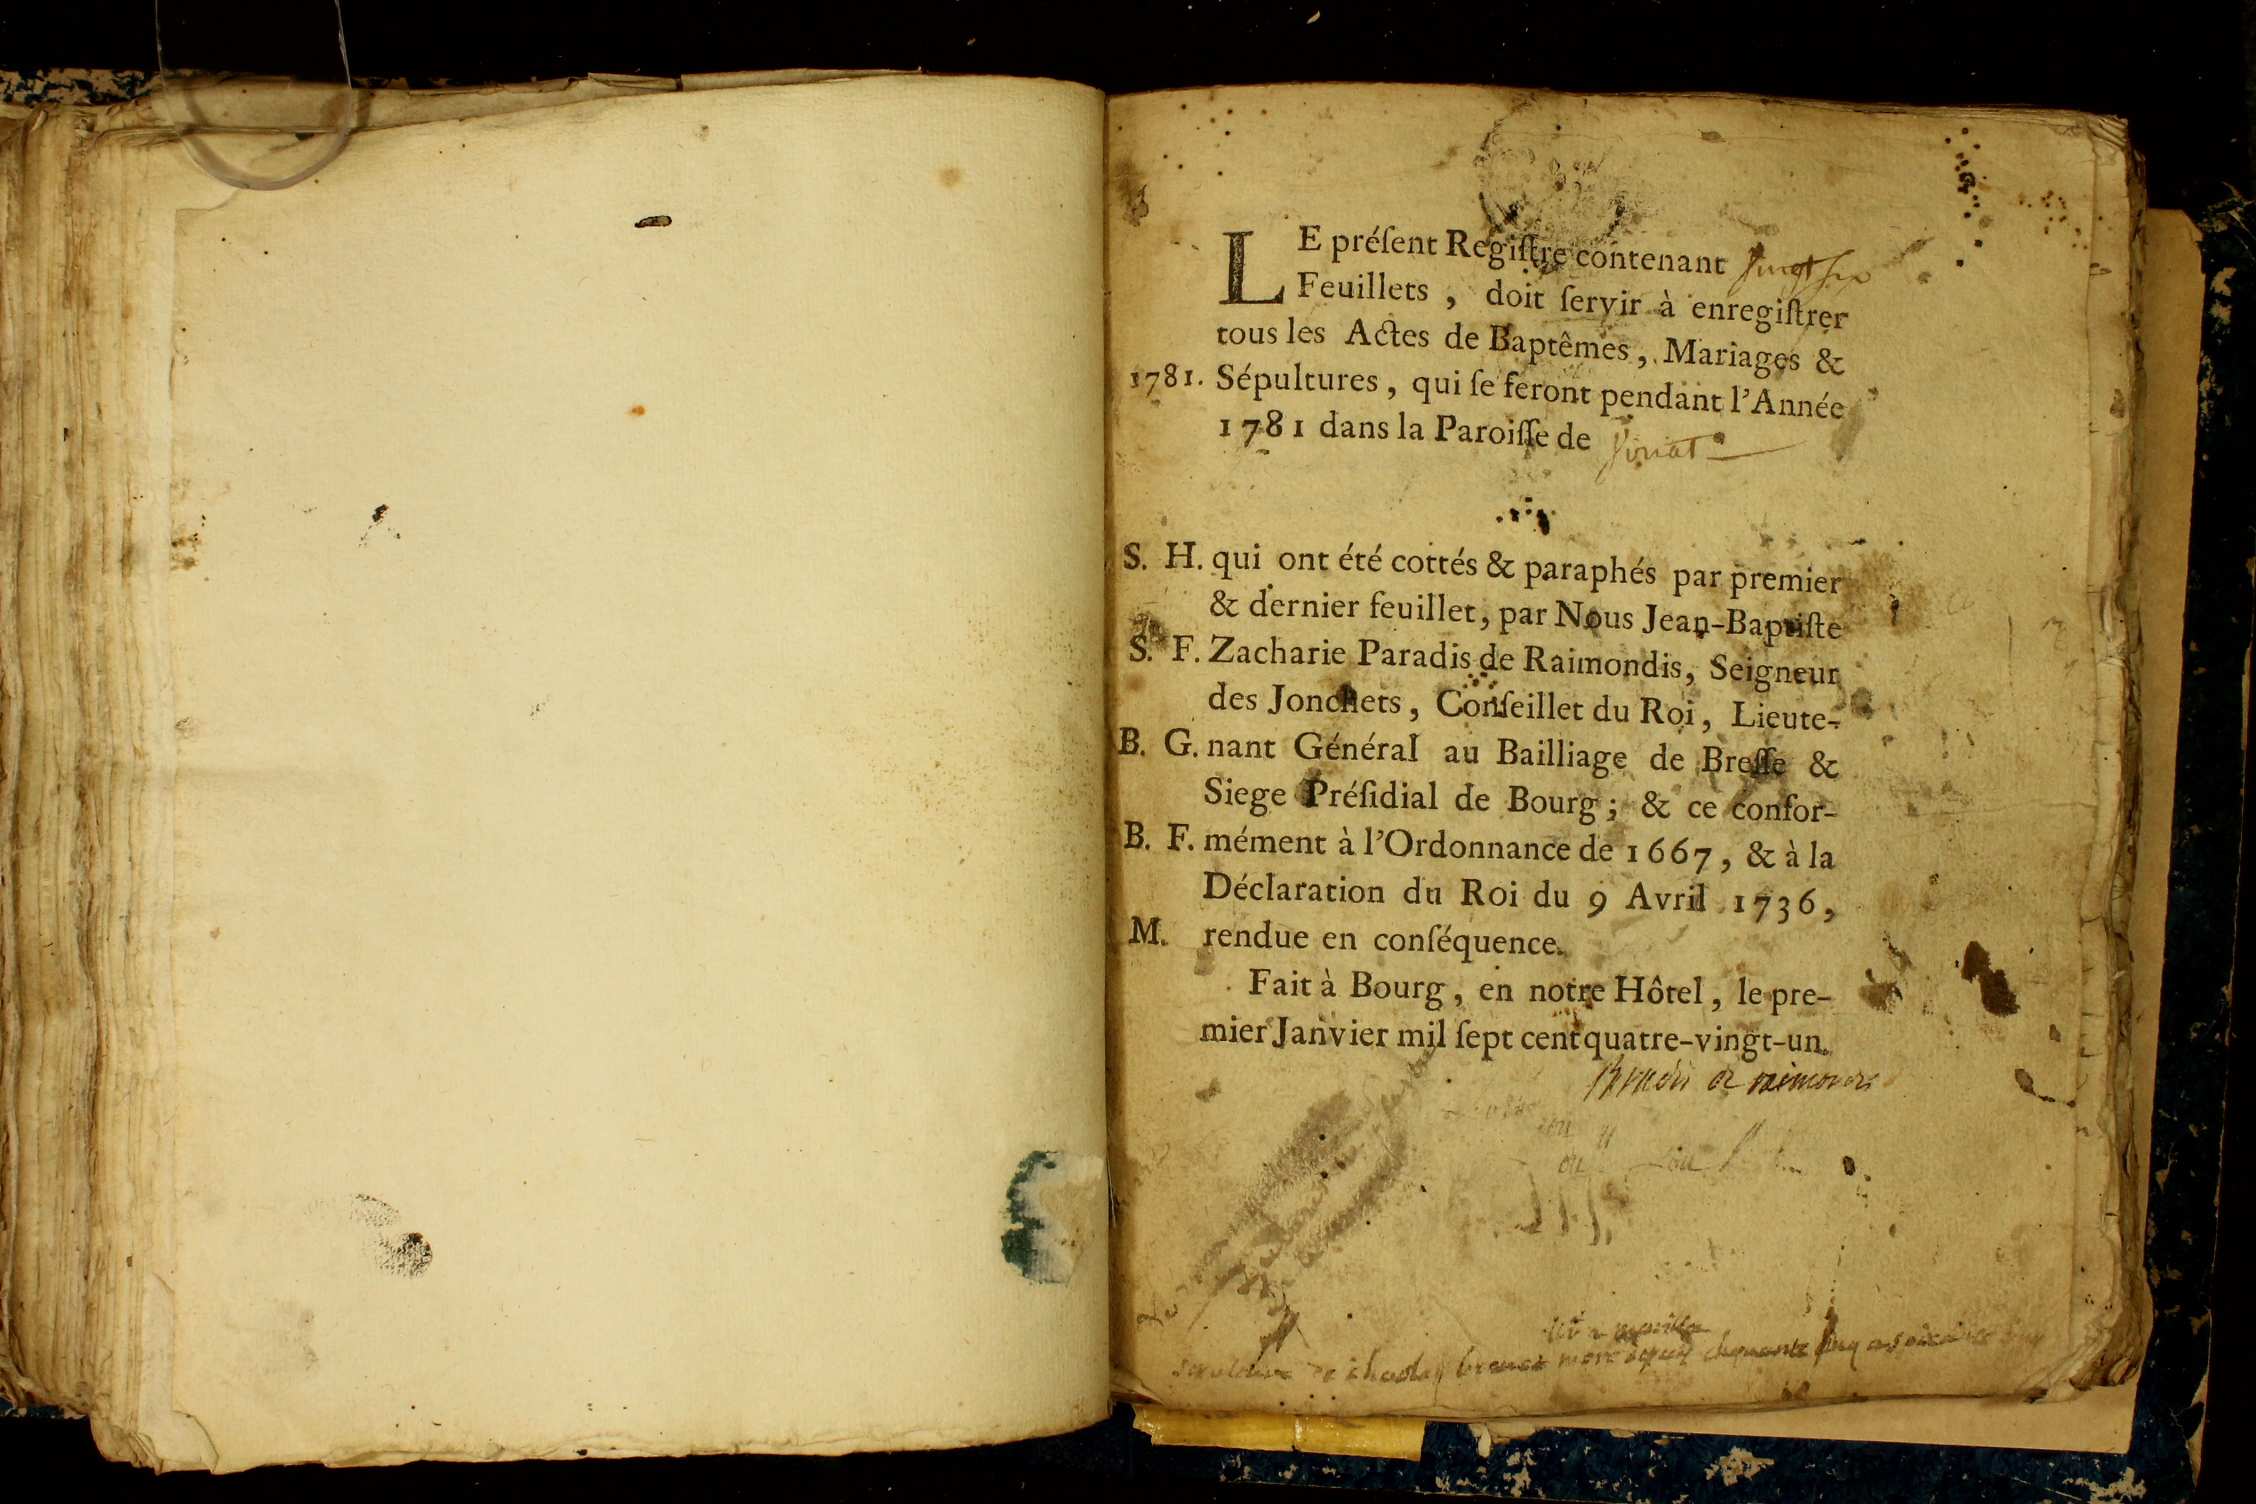 LE préſent Regiſtre contenant vingt six
Feuillets, doit ſervir à enregiſtrer
tous les Actes de Baptêmes, Mariages &
1781. Sépultures, qui ſe feront pendant l'Année
1781 dans la Paroiſſe de
S. H. qui ont été cottés & paraphés par premier
& dernier feuillet, par Nous Jean-Baptiſte
S. F. Zacharie Paradis de Raimondis, Seigneur
des Jonchets, Conſeillet du Roi, Lieute-
B. G. nant Général au Bailliage de Breſſe &
Siege Préſidial de Bourg; & ce confor-
B. F. mément à l'Ordonnance de 1667, & à la
Déclaration du Roi du 9 Avril 1736,
M. rendue en conſéquence.
Fait à Bourg, en notre Hôtel, le pre-
mier Janvier mil ſept cent quatre-vingt-un.